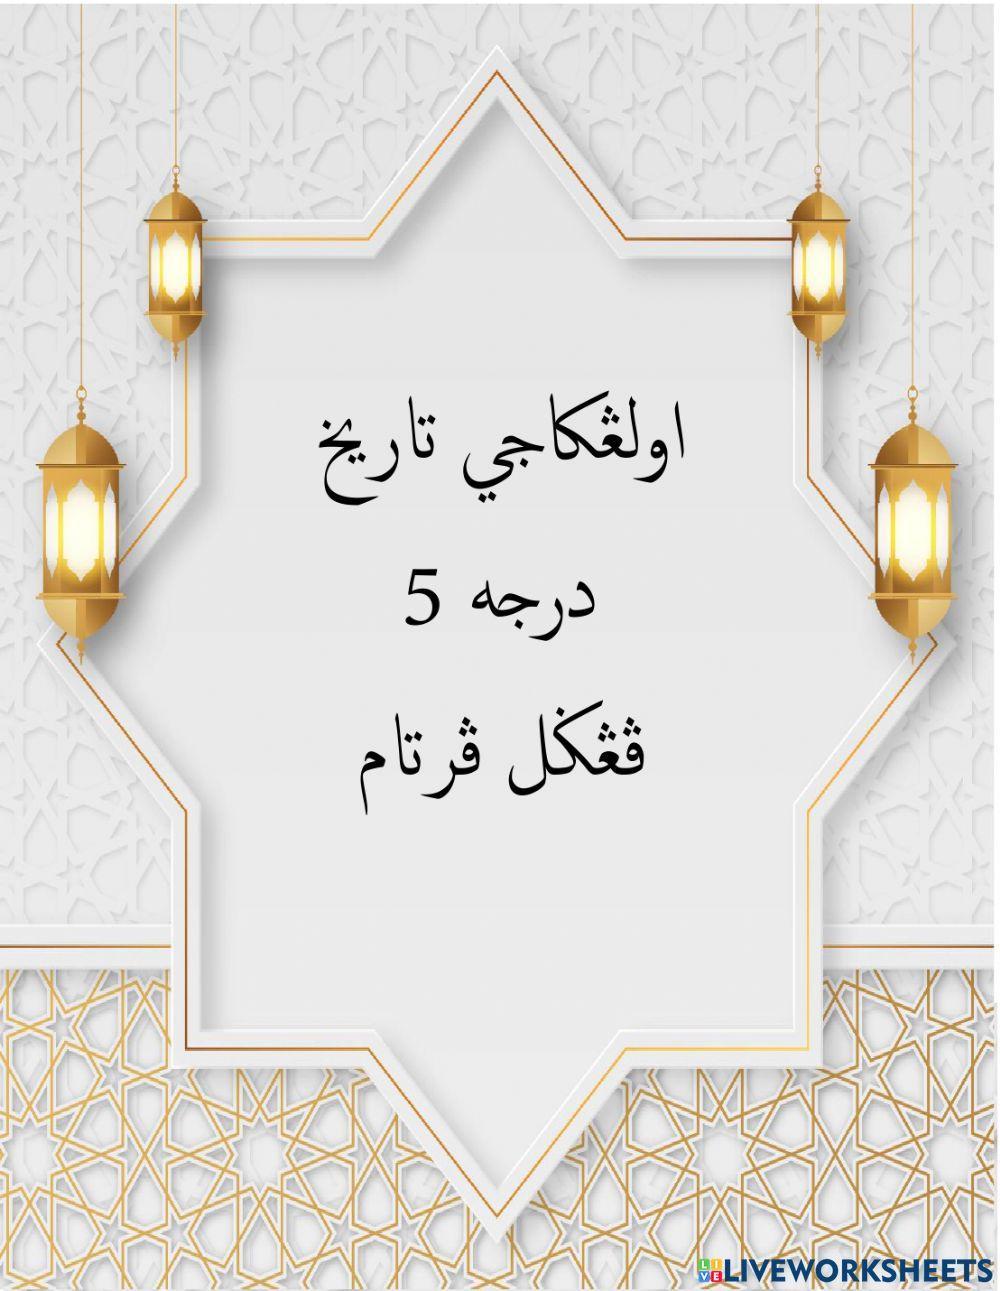 اولڠكاجي تاريخ
درجه 5
ڤڠݢل ڤرتام
LIVEWORKSHEETS